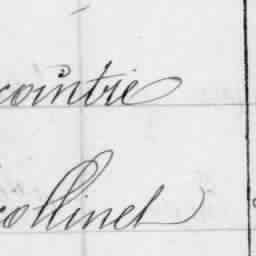 cointrie
collinet